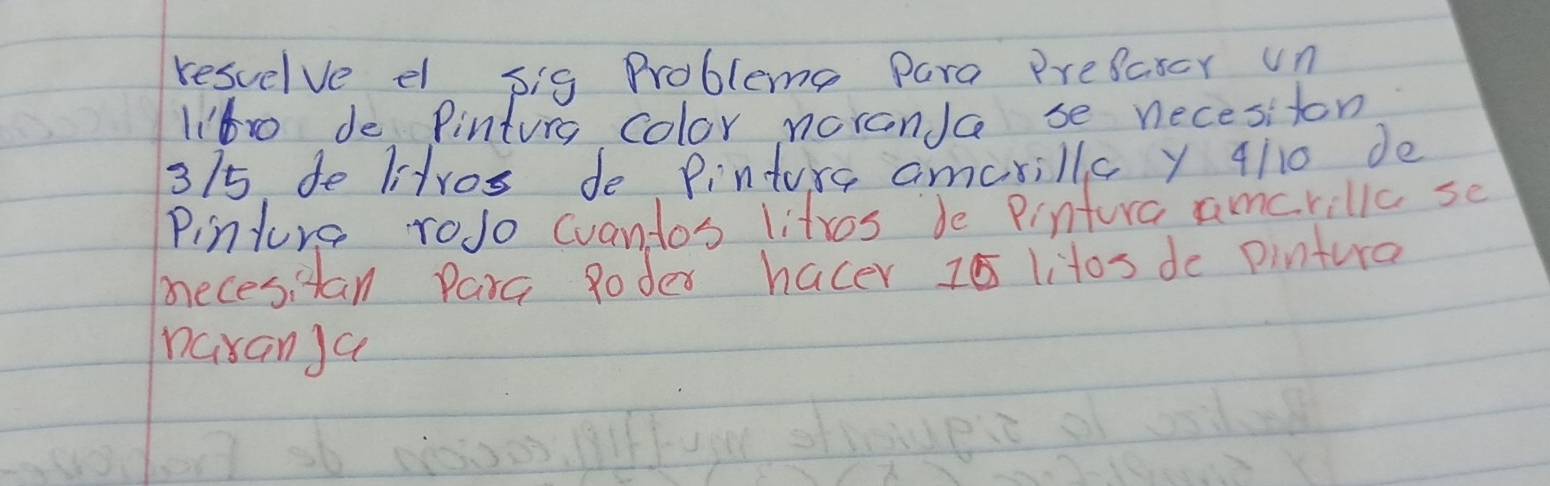 resuelve el sig Problema Para Preparar un
litro de Pintura color naranja se necesitan
3/5 de litros de Pintura amarilla y 4/10 de
Pintura rojo cuantos litros de Pintura amarilla se
necesitan Para Poder hacer 15 litos de pintura
naranja